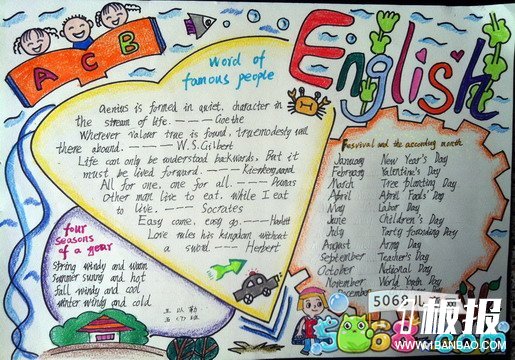 A C B
Word of
famous people
Genius is formed in quiet, character in
the stream of life. ———— Goethe
Wherever valour true is found, true modesty will
there abound. ———— W.S.Gilbert
Life can only be understood backwards, but it
must be lived forward. ———— Kierkengaard
All for one, one for all. ———— Dumas
Other man live to eat, while I eat
to live. ———— Socrates
Easy come, easy go. ———— Hazlett
Love rules his kingdom without
a sword. ———— Herbert
four
seasons
of a year
Spring windy and warm
summer sunny and hot
fall windy and cool
winter windy and cold
English
Fesvival and the according month
January New Year's Day
February Valentine's Day
March Tree planting Day
April April Fools' Day
May Labor Day
June Children's Day
July Party founding Day
August Army Day
September Teacher's Day
October National Day
November World Youth Day
5068儿
板报
WWW.1BANBAO.COM